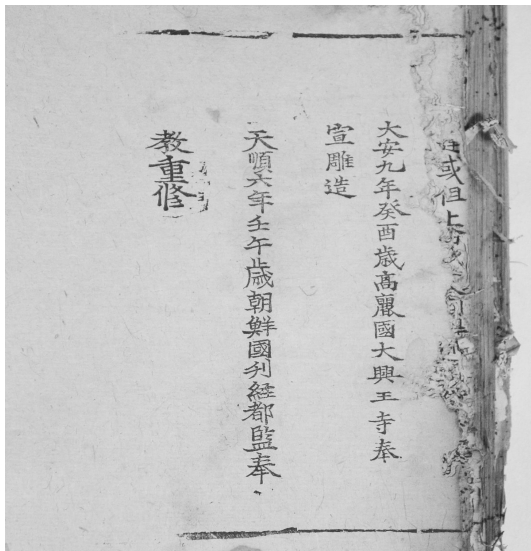 且或但上
大安九年癸酉歳高麗國大興王寺奉
宣雕造
天順六年壬午歳朝鮮國刋経都監奉
教重修